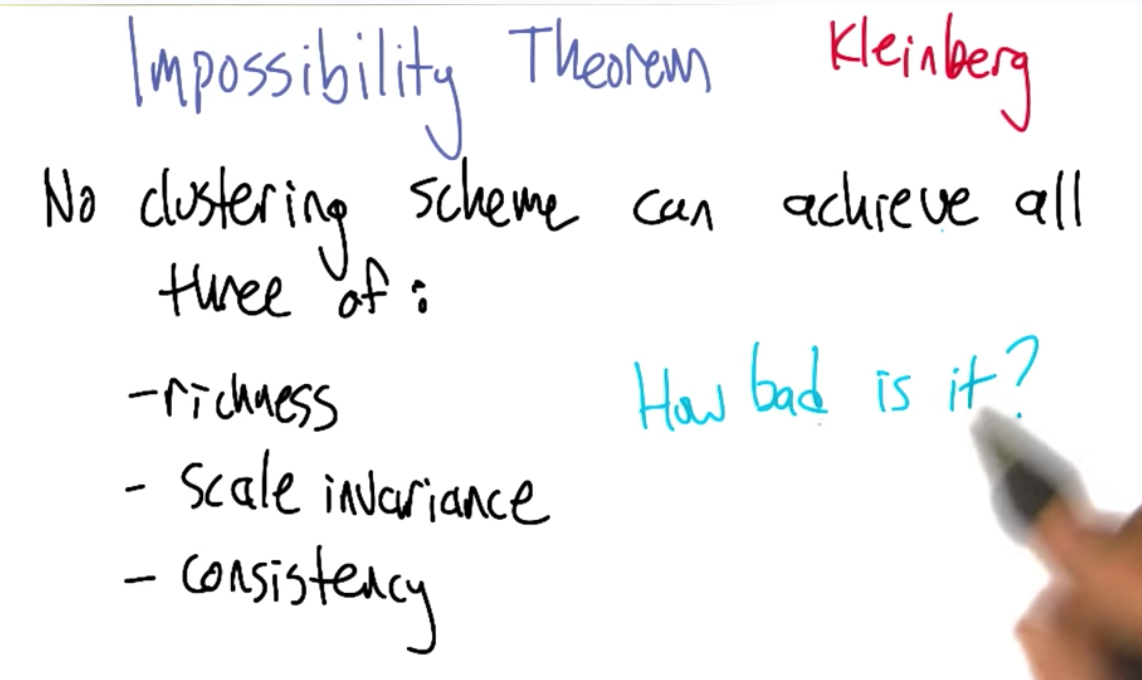 Impossibility Theorem Kleinberg
No clustering scheme can achieve all
three of:
- richness
How bad is it?
- scale invariance
- consistency